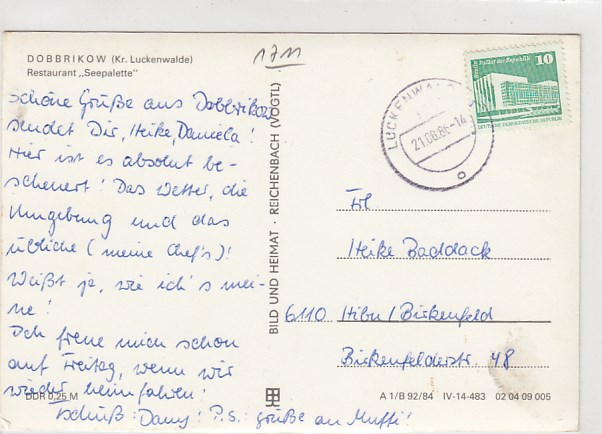 DOBBRIKOW (Kr. Luckenwalde)
Restaurant „Seepalette"
1711
schöne Grüße aus Dobbrikow
sendet Dir, Heike, Daniela!
Hier ist es absolut be-
scheuert! Das Wetter, die
Umgebung und das
übliche (meine Chef's)!
Weißt ja, wie ich's mei-
ne!
Ich freue mich schon
auf Freitag, wenn wir
wieder heimfahren!
Tschüß Dany! P.S. grüße an Muffi!
DDR 0,25 M
BILD UND HEIMAT · REICHENBACH (VOGTL)
LUCKENWALDE
21.08.86-14
10
Palast der Republik
DEUTSCHE DEMOKRATISCHE REPUBLIK
Frl
Heike Baddack
6110 Hibu/Birkenfeld
Birkenfelderstr. 48
A 1/B 92/84 IV-14-483 02 04 09 005